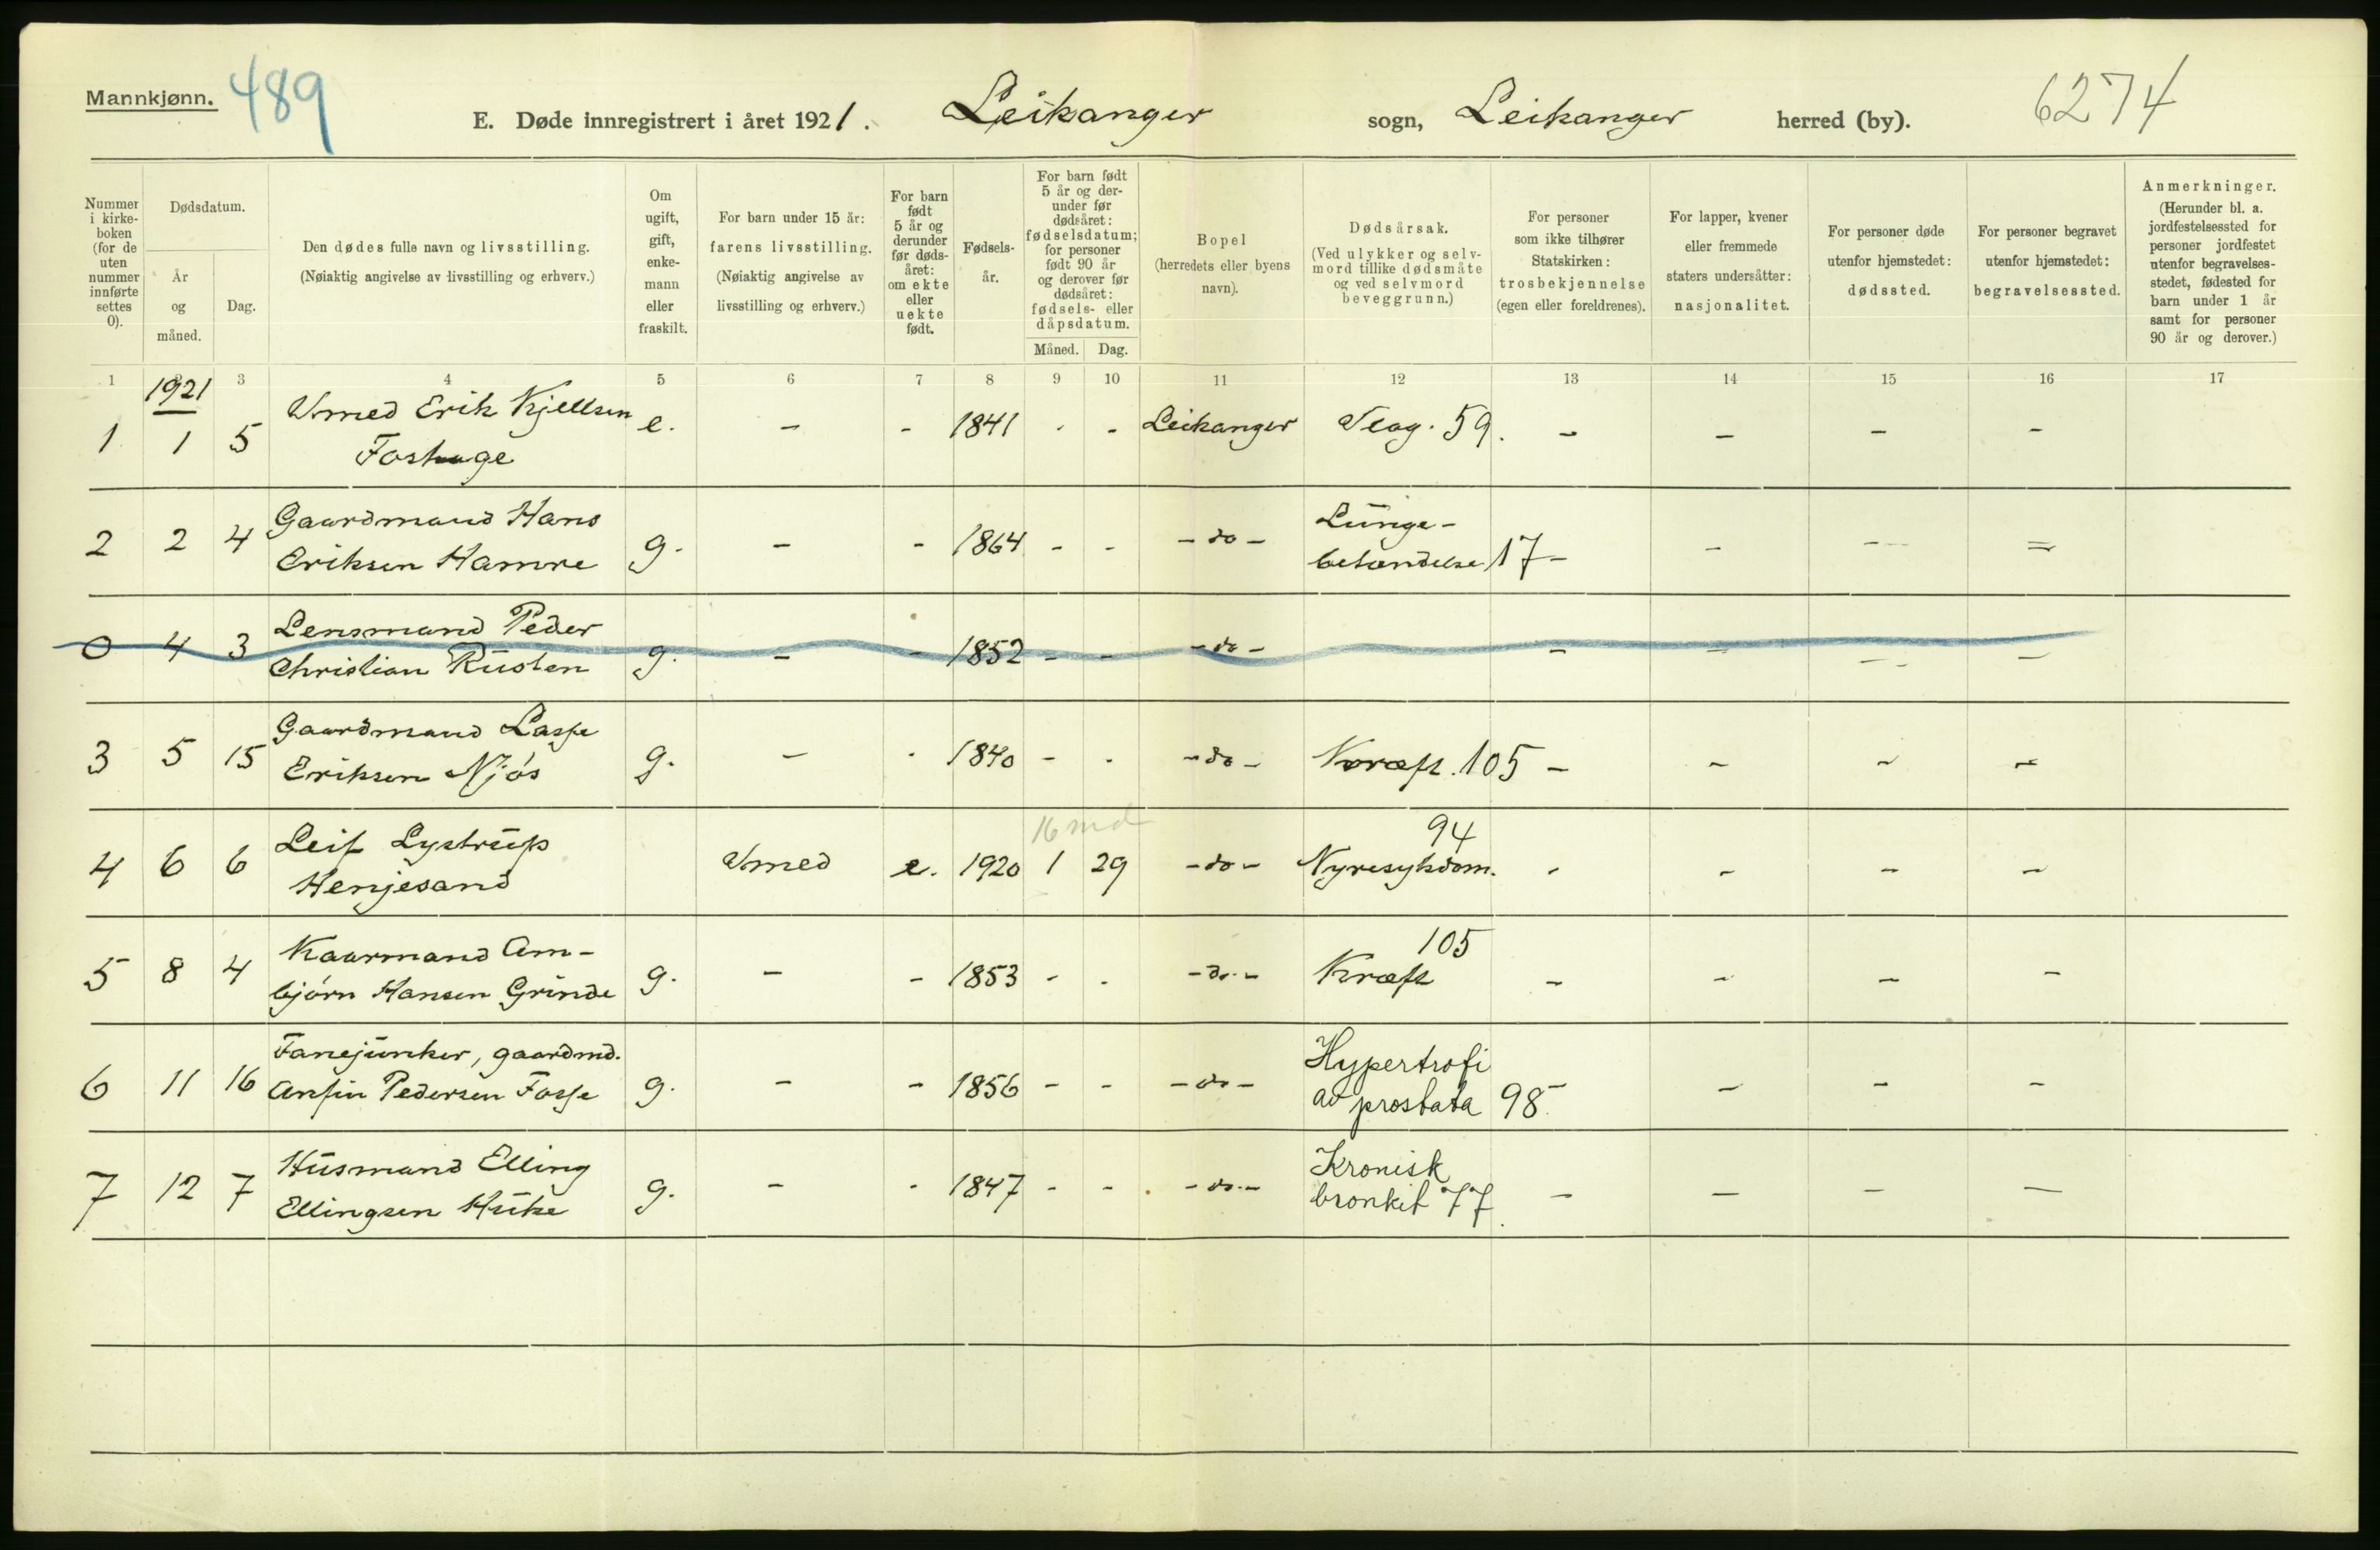 Mannkjønn. 489
E. Døde innregistrert i året 1921. Leikanger sogn, Leikanger herred (by). 6274
Nummer i kirke- boken (for de uten nummer innførte settes 0).
Dødsdatum.
År og måned.
Dag.
Den dødes fulle navn og livsstilling.
(Nøiaktig angivelse av livsstilling og erhverv.)
Om ugift, gift, enke- mann eller fraskilt.
For barn under 15 år: farens livsstilling.
(Nøiaktig angivelse av livsstilling og erhverv.)
For barn født 5 år og derunder før døds- året: om ekte eller uekte født.
Fødsels- år.
For barn født 5 år og der- under før dødsåret: fødselsdatum; for personer født 90 år og derover før dødsåret: fødsels- eller dåpsdatum.
Måned. Dag.
Bopel (herredets eller byens navn).
Dødsårsak.
(Ved ulykker og selv- mord tillike dødsmåte og ved selvmord beveggrunn.)
For personer som ikke tilhører Statskirken: trosbekjennelse (egen eller foreldrenes).
For lapper, kvener eller fremmede staters undersåtter: nasjonalitet.
For personer døde utenfor hjemstedet: dødssted.
For personer begravet utenfor hjemstedet: begravelsessted.
Anmerkninger.
(Herunder bl. a. jordfestelsessted for personer jordfestet utenfor begravelses- stedet, fødested for barn under 1 år samt for personer 90 år og derover.)
1 3 4 5 6 7 8 9 10 11 12 13 14 15 16 17
1921
Smed Erik Kjellsen
1 1 5 e. - - 1841 - - Leikanger Slag. 59. - - - -
Foshage
Gaardmand Hans Lunge-
2 2 4 Eriksen Hamre g. - - 1864 - - -do- betændelse 17 - - - =
Lensmand Peder
0 4 3 Christian Rusten g. - - 1852 - - -do- - - - -
Gaardmand Lasse
3 5 15 Eriksen Njøs g. - - 1840 - - -do- Kræft. 105 - - - -
Leif Lystrup 16 md 94
4 6 6 Henjesand Smed e. 1920 1 29 -do- Nyresykdom. - - - -
Kaarmand Am- 105
5 8 4 bjørn Hansen Grinde g. - - 1853 - - -do- Kræft - - - -
Fanejunker, gaardmd. Hypertrofi
6 11 16 Anfin Pedersen Fosse g. - - 1856 - - -do- av prostata 98 - - - -
Husmand Elling Kronisk
7 12 7 Ellingsen Huke g. - - 1847 - - -do- bronkit 77. - - - -